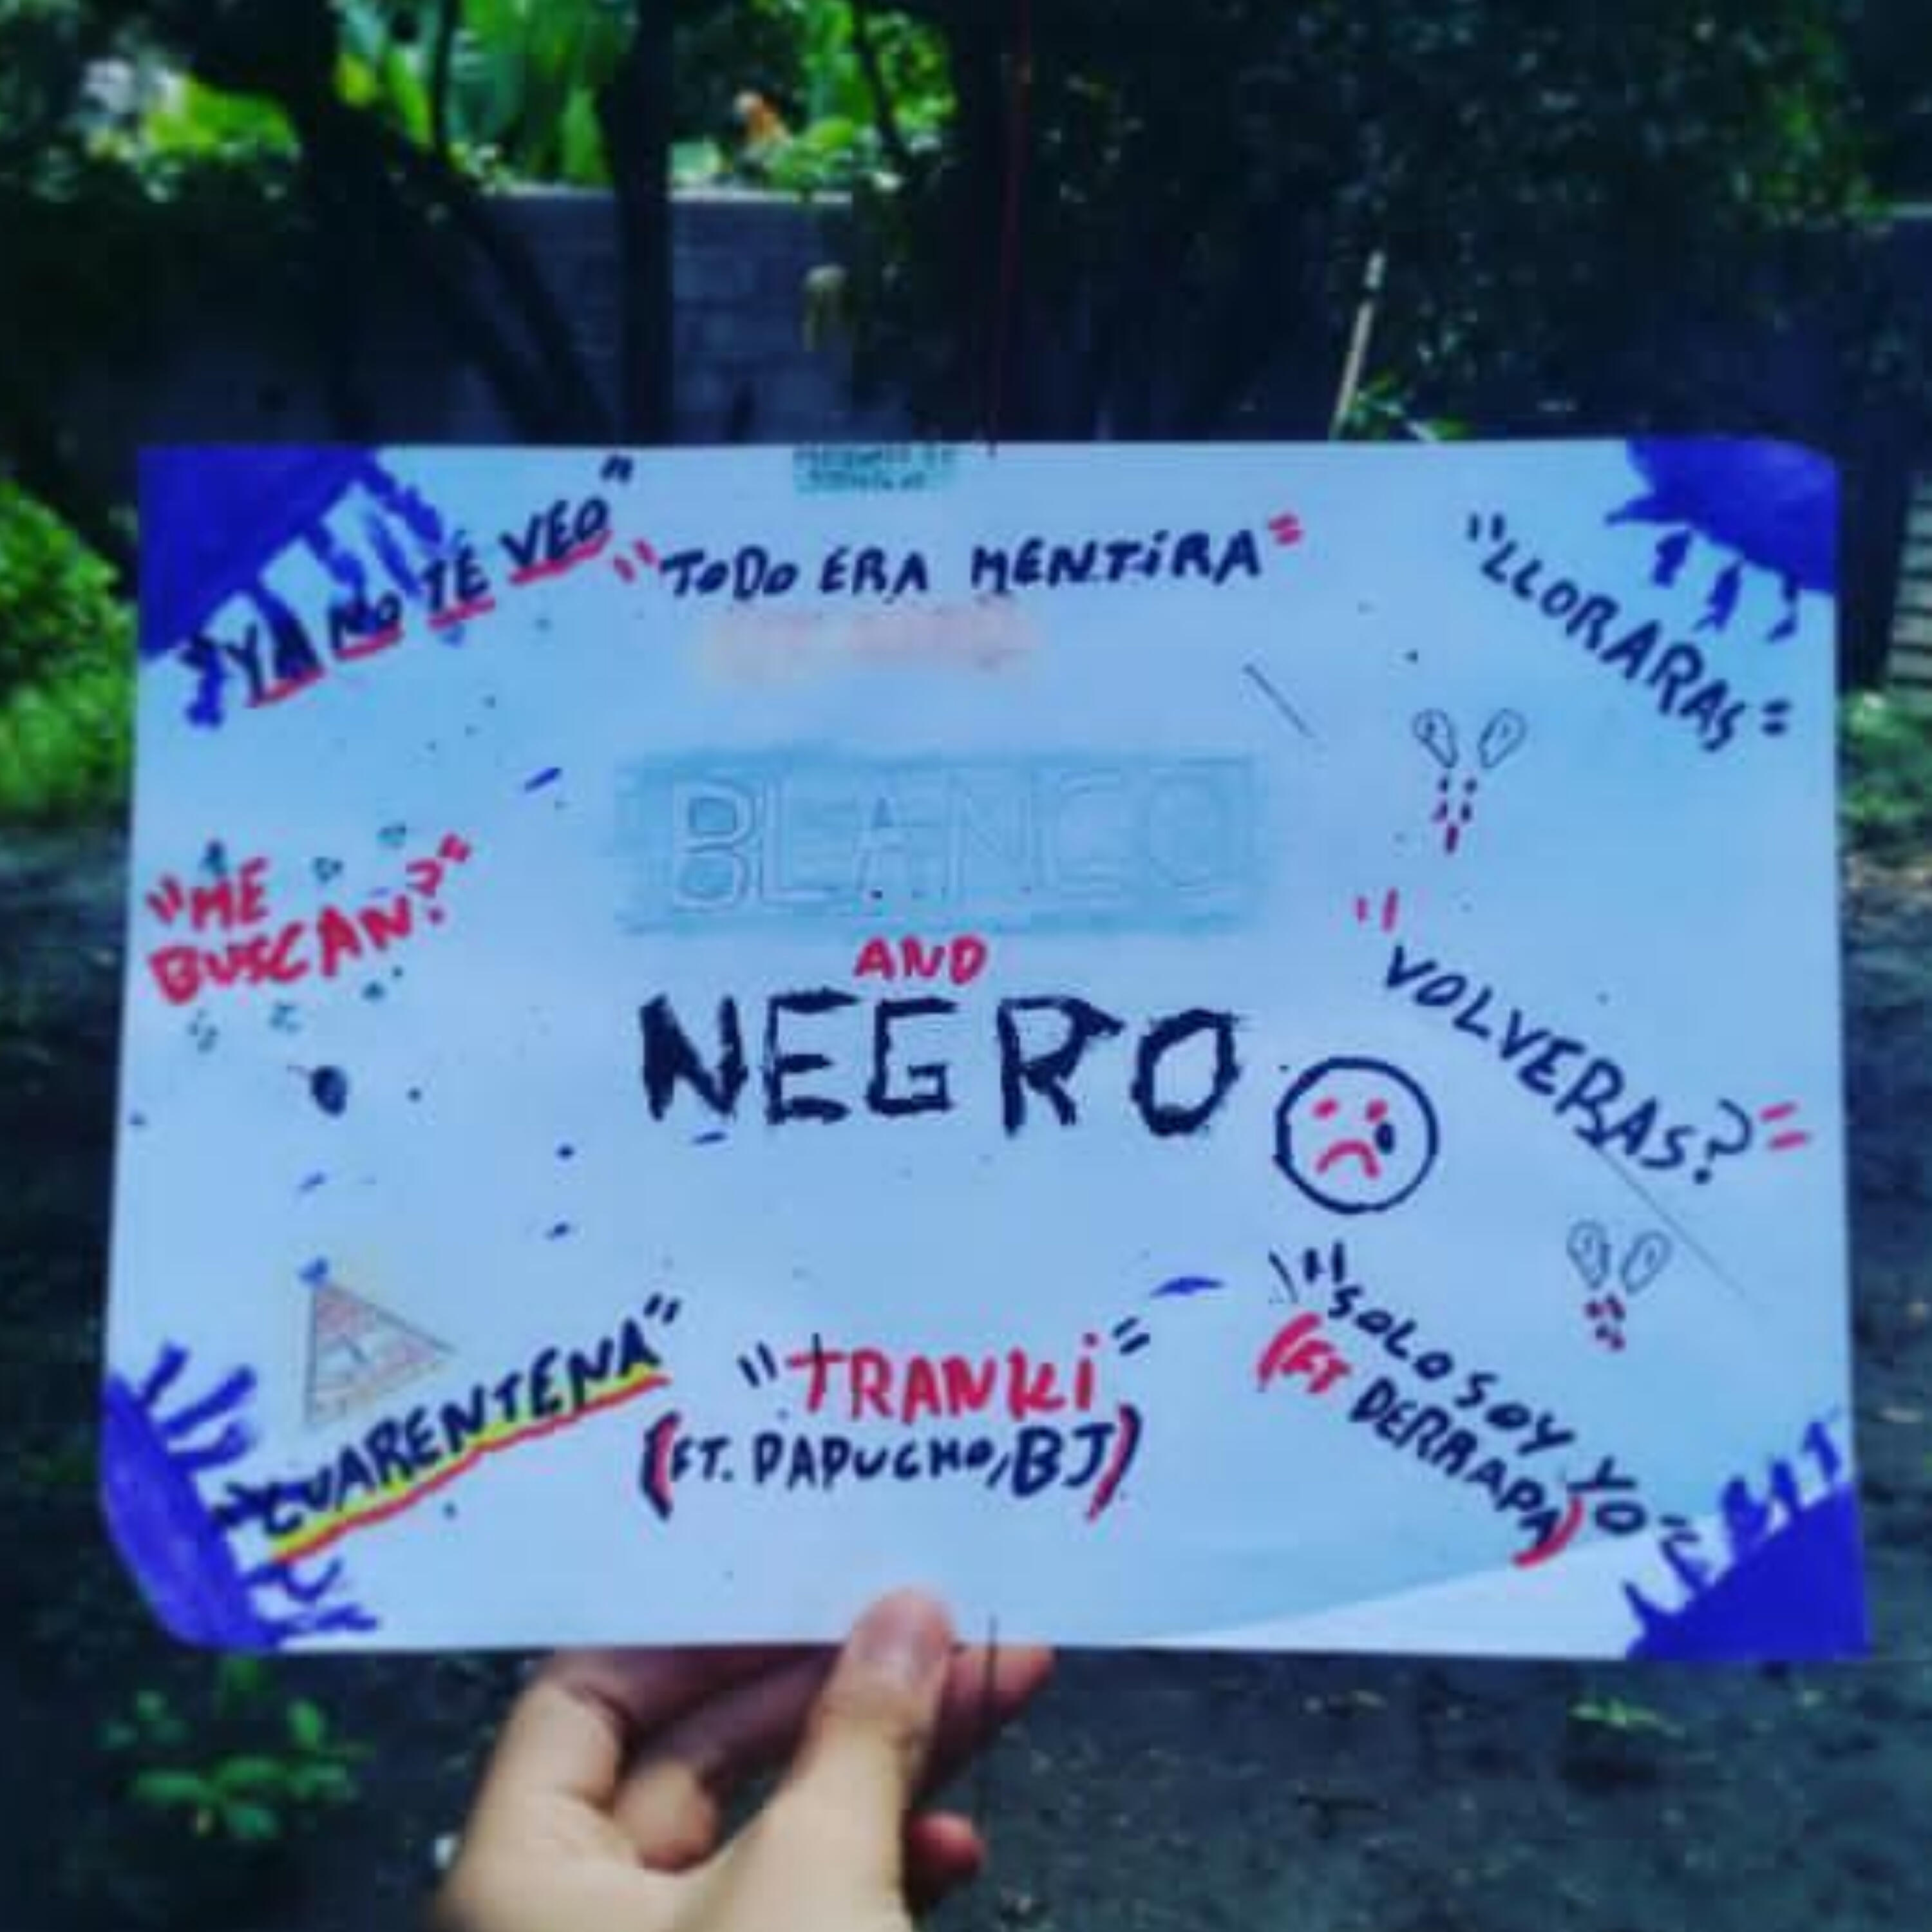 "YA NO TE VEO"
"TODO ERA MENTIRA"
"LLORARAS"
BLANCO
"ME
BUSCAN?"
AND
NEGRO
"VOLVERAS?"
"CUARENTENA"
"TRANKI"
(FT. PAPUCHO, BJ)
"SOLO SOY YO"
(FT DERRAPA)